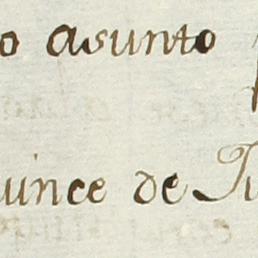 o asunto
uince de Ju